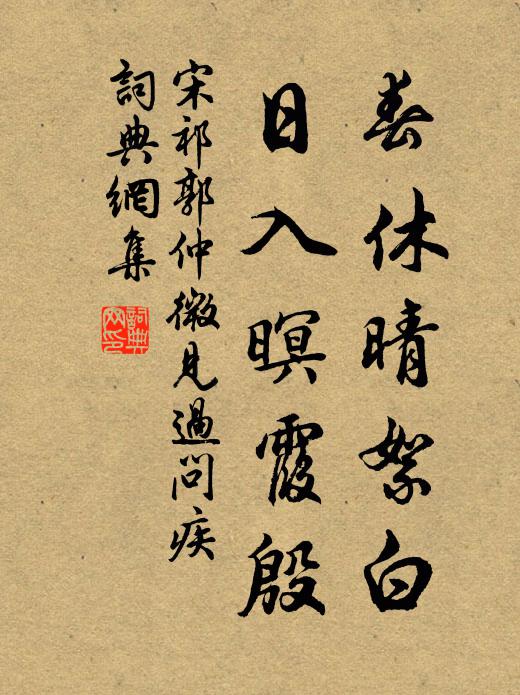 春休晴絮白
日入暝霞殷
宋祁郭仲微見過問疾
詞典網集
詞典网印